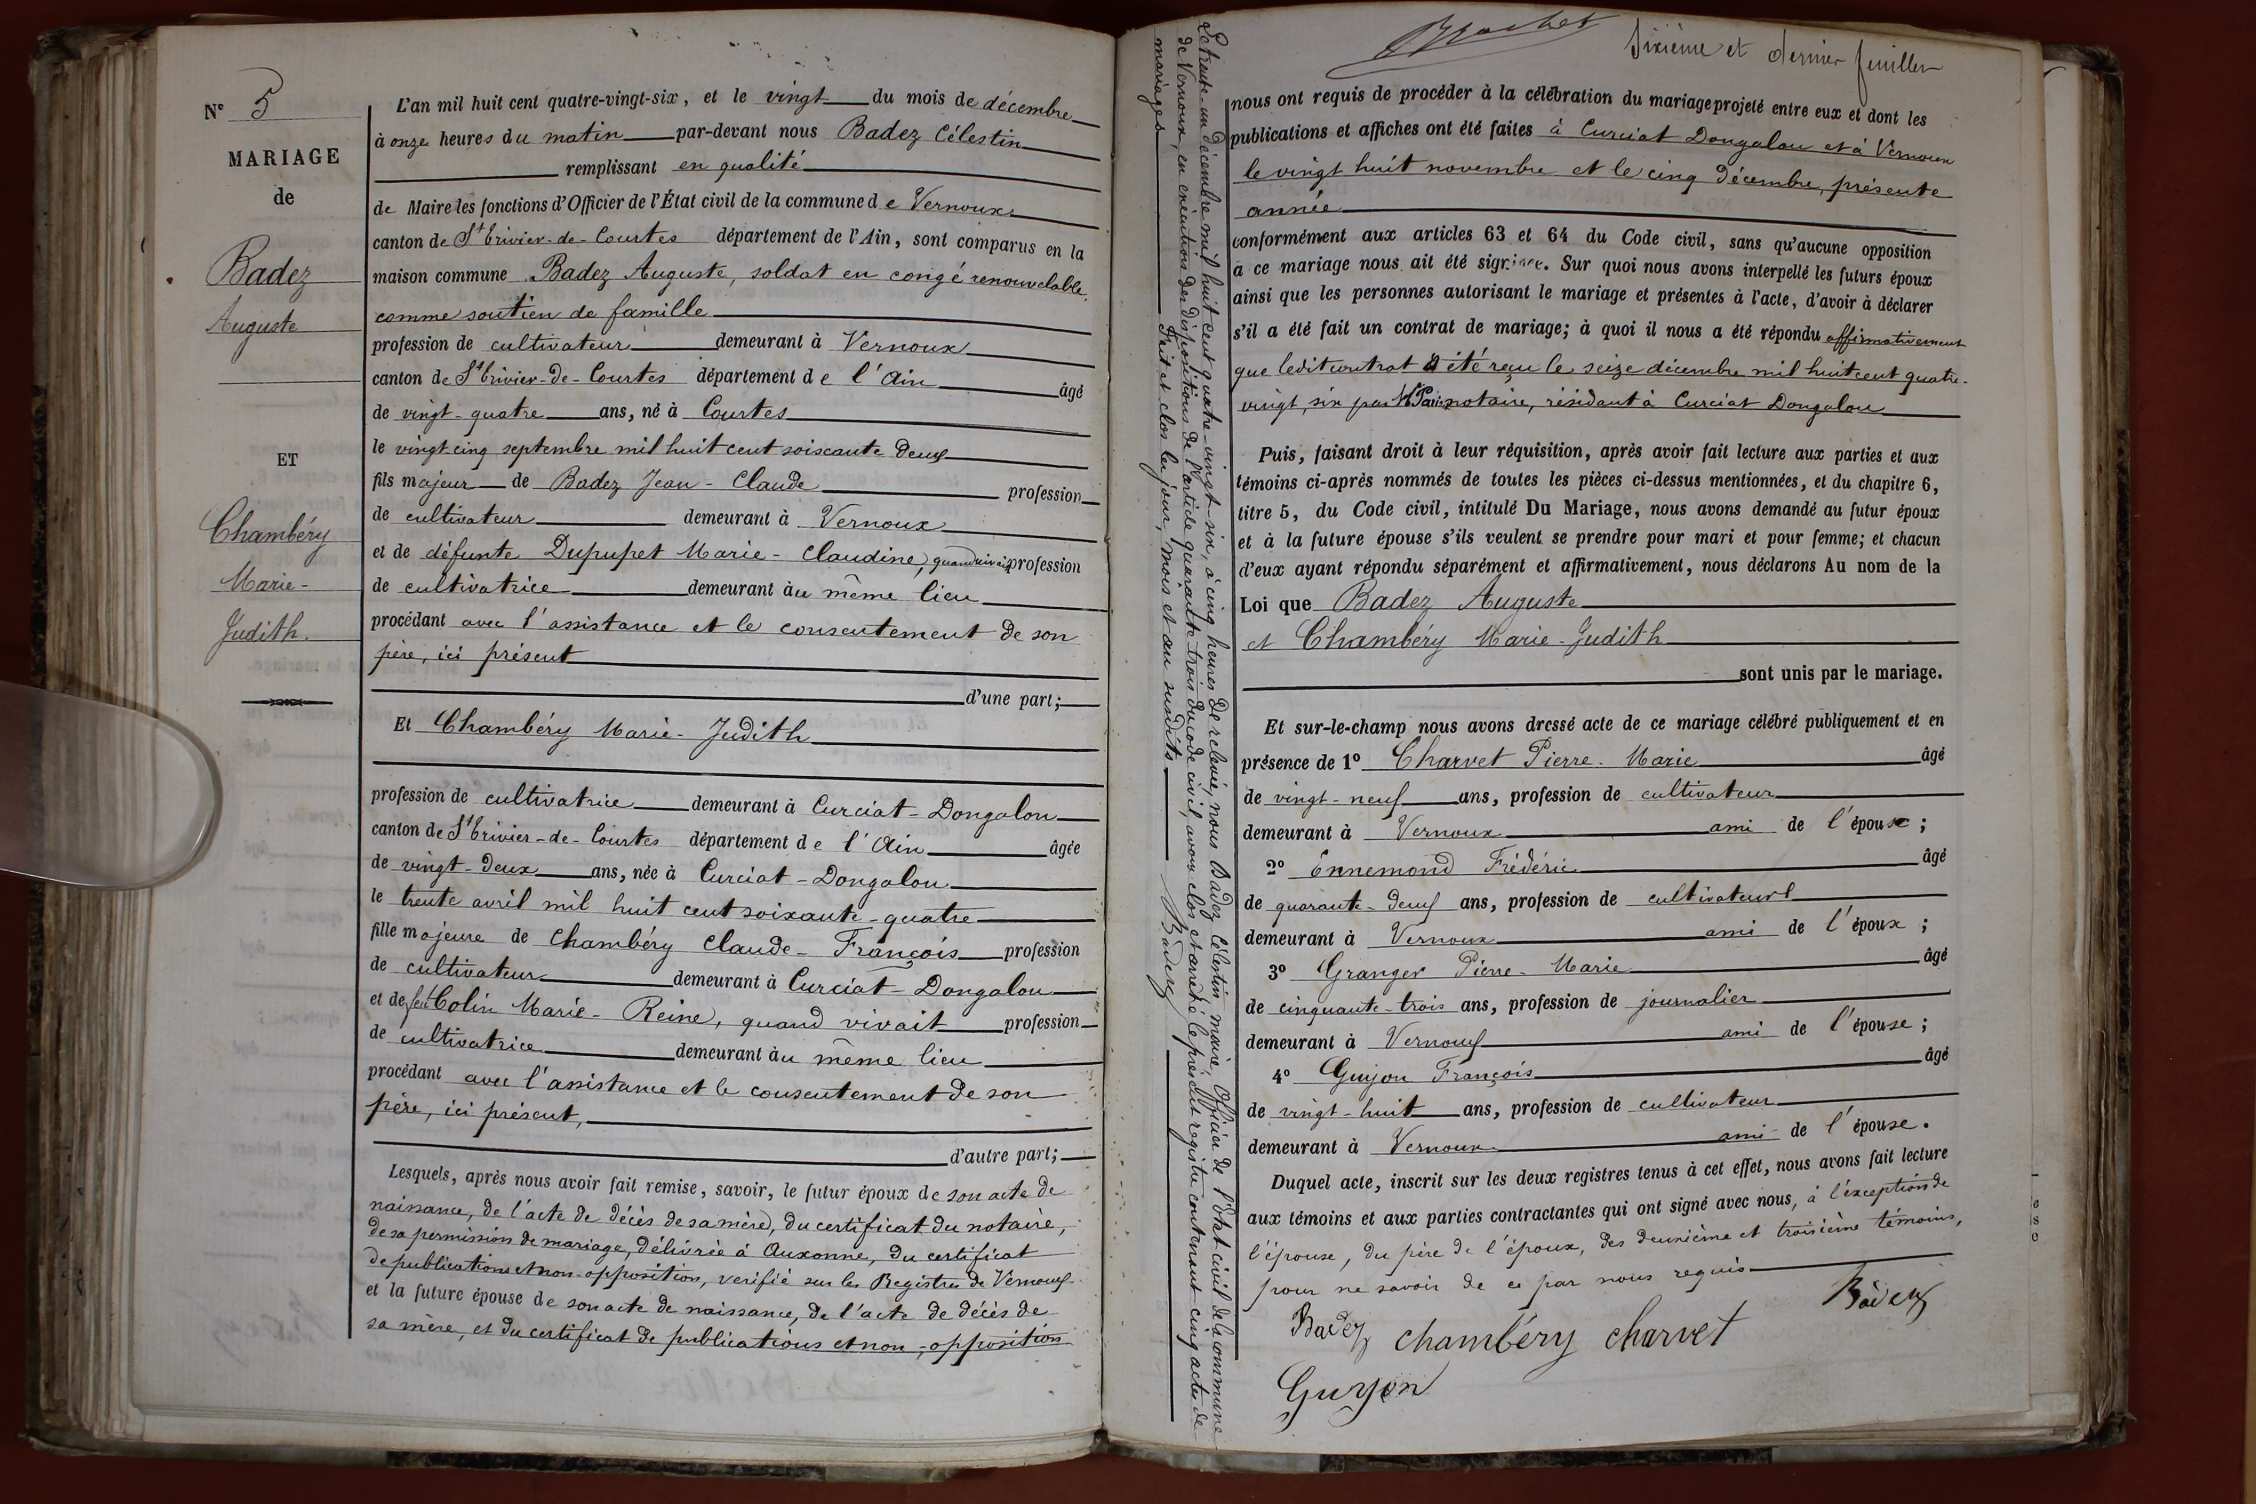 N° 5
MARIAGE
de
Badez
Auguste
ET
Chambéry
Marie-
Judith.
L'an mil huit cent quatre-vingt-six, et le vingt du mois de décembre
à onze heures du matin par-devant nous Badez Célestin
remplissant en qualité
de Maire les fonctions d'Officier de l'État civil de la commune de Vernoux
canton de St Trivier-de-Courtes département de l'Ain, sont comparus en la
maison commune Badez Auguste, soldat en congé renouvelable,
comme soutien de famille
profession de cultivateur demeurant à Vernoux
canton de St Trivier-de-Courtes département de l'Ain âgé
de vingt-quatre ans, né à Courtes
le vingt cinq septembre mil huit cent soixante deux
fils majeur de Badez Jean-Claude profession
de cultivateur demeurant à Vernoux
et de défunte Dupupet Marie-Claudine, quand vivait profession
de cultivatrice demeurant au même lieu
procédant avec l'assistance et le consentement de son
père, ici présent
d'une part;
Et Chambéry Marie-Judith
profession de cultivatrice demeurant à Curciat-Dongalon
canton de St Trivier-de-Courtes département de l'Ain âgée
de vingt-deux ans, née à Curciat-Dongalon
le trente avril mil huit cent soixante-quatre
fille majeure de Chambéry Claude-François profession
de cultivateur demeurant à Curciat-Dongalon
et de feu Colin Marie-Reine, quand vivait profession
de cultivatrice demeurant au même lieu
procédant avec l'assistance et le consentement de son
père, ici présent,
d'autre part;
Lesquels, après nous avoir fait remise, savoir, le futur époux de son acte de
naissance, de l'acte de décès de sa mère, du certificat du notaire,
de sa permission de mariage, délivrée à Auxonne, du certificat
de publications et non-opposition, verifié sur les Registres de Vernoux
et la future épouse de son acte de naissance, de l'acte de décès de
sa mère, et du certificat de publications et non-opposition
Le trente-un Décembre mil huit cent quatre-vingt-six, à cinq heures de relevée, nous Badez Célestin maire, Officier de l'état civil de la commune
de Vernoux, en exécution des dispositions de l'article quarante-trois du code civil, avons clos et arrêté le présent registre contenant cinq actes de
mariages Fait et clos les jour, mois et an susdits Badez
Sixième et dernier feuillet
nous ont requis de procéder à la célébration du mariage projeté entre eux et dont les
publications et affiches ont été faites à Curciat Dongalon et à Vernoux
le vingt huit novembre et le cinq décembre, présente
année
conformément aux articles 63 et 64 du Code civil, sans qu'aucune opposition
à ce mariage nous ait été signifiée. Sur quoi nous avons interpellé les futurs époux
ainsi que les personnes autorisant le mariage et présentes à l'acte, d'avoir à déclarer
s'il a été fait un contrat de mariage; à quoi il nous a été répondu affirmativement
que ledit contrat a été reçu le seize décembre mil huit cent quatre-
vingt, six par notaire, résidant à Curciat Dongalon
Puis, faisant droit à leur réquisition, après avoir fait lecture aux parties et aux
témoins ci-après nommés de toutes les pièces ci-dessus mentionnées, et du chapitre 6,
titre 5, du Code civil, intitulé Du Mariage, nous avons demandé au futur époux
et à la future épouse s'ils veulent se prendre pour mari et pour femme; et chacun
d'eux ayant répondu séparément et affirmativement, nous déclarons Au nom de la
Loi que Badez Auguste
et Chambéry Marie-Judith
sont unis par le mariage.
Et sur-le-champ nous avons dressé acte de ce mariage célébré publiquement et en
présence de 1° Charvet Pierre-Marie âgé
de vingt-neuf ans, profession de cultivateur
demeurant à Vernoux ami de l'époux;
2° Ennemond Frédéric âgé
de quarante-deux ans, profession de cultivateur
demeurant à Vernoux ami de l'époux;
3° Granger Pierre-Marie âgé
de cinquante-trois ans, profession de journalier
demeurant à Vernoux ami de l'épouse;
4° Guyon François âgé
de vingt-huit ans, profession de cultivateur
demeurant à Vernoux ami de l'épouse.
Duquel acte, inscrit sur les deux registres tenus à cet effet, nous avons fait lecture
aux témoins et aux parties contractantes qui ont signé avec nous, à l'exception de
l'épouse, du père de l'époux, des deuxième et troisième témoins,
pour ne savoir de ce par nous requis
Badez
Badez chambéry charvet
Guyon